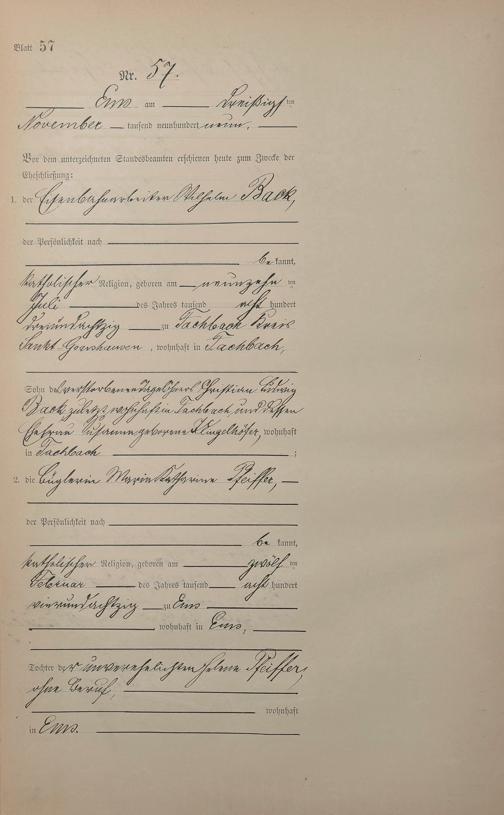 Blatt 57
Nr. 57.
Ems am Dreißigsten
November tausend neunhundert neun.
Vor dem unterzeichneten Standesbeamten erschienen heute zum Zwecke der
Eheschließung:
1. der Eisenbahnarbeiter Wilhelm Back,
der Persönlichkeit nach
be kannt,
katholischer Religion, geboren am neunzehn ten
Juli des Jahres tausend acht hundert
dreiundachtzig zu Fachbach Kreis
Sankt Goarshausen, wohnhaft in Fachbach,
Sohn des verstorbenen Tagelöhners Christian Ludwig
Back, zuletzt wohnhaft in Fachbach und dessen
Ehefrau Susanna geborene Klingelhöfer, wohnhaft
in Fachbach ;
2. die Büglerin Maria Katharine Pfeiffer,
der Persönlichkeit nach
be kannt,
katholischer Religion, geboren am zwölf ten
Februar des Jahres tausend acht hundert
vierundachtzig zu Ems
wohnhaft in Ems,
Tochter der unverehelichten Helene Pfeiffer,
ohne Beruf,
wohnhaft
in Ems.